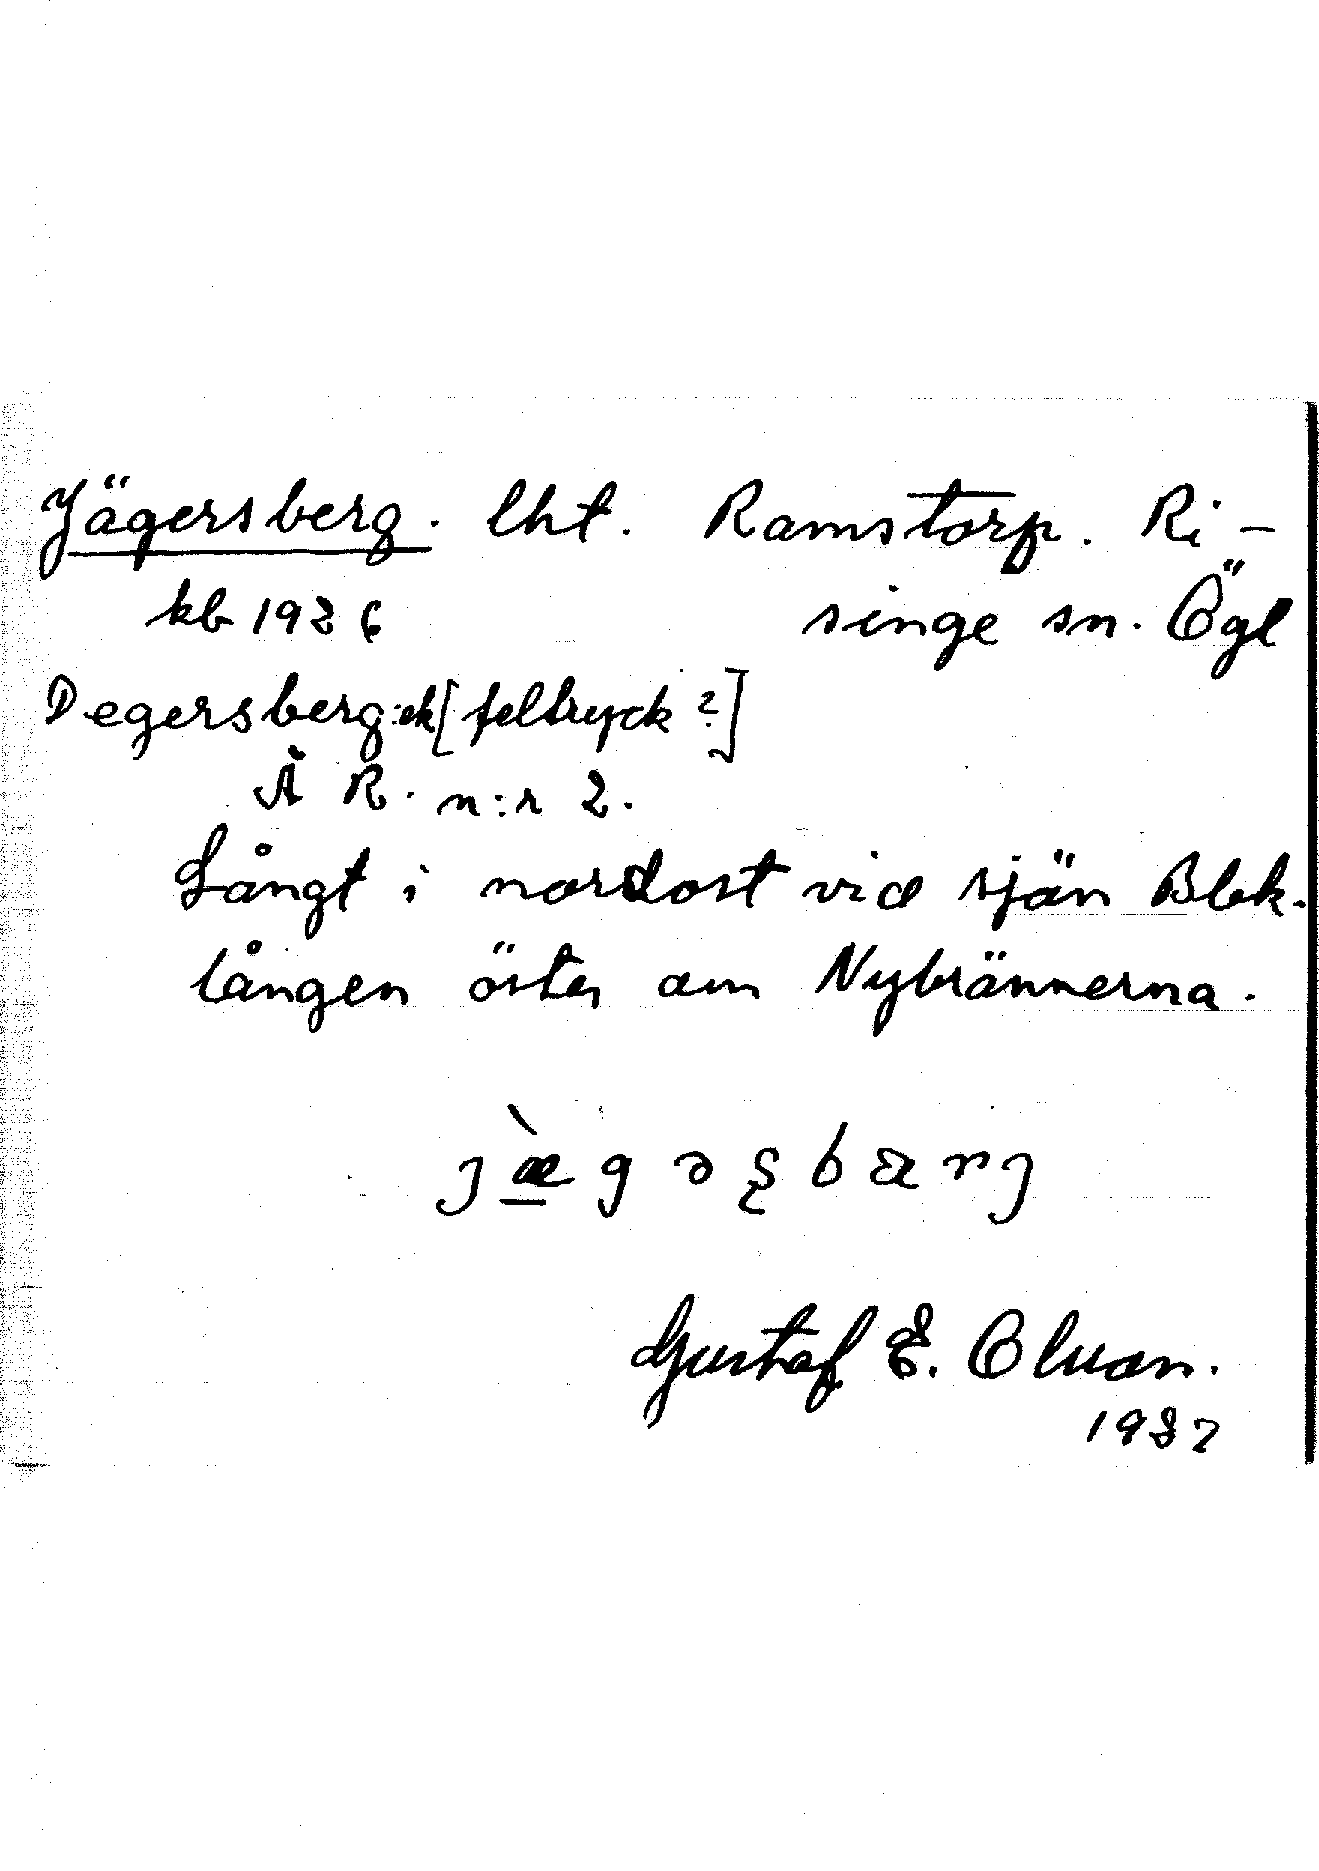 Jägersberg. lht. Ramstorp. Ri-
kb 1936 singe sn. Ögl
Degersberg: ek [feltryck?]
Ä R. n:r 2.
Långt i nordost vid sjön Blek-
lången öster om Nybrännerna.
jæ̀gəʂbærj
Gustaf E. Olson.
1937